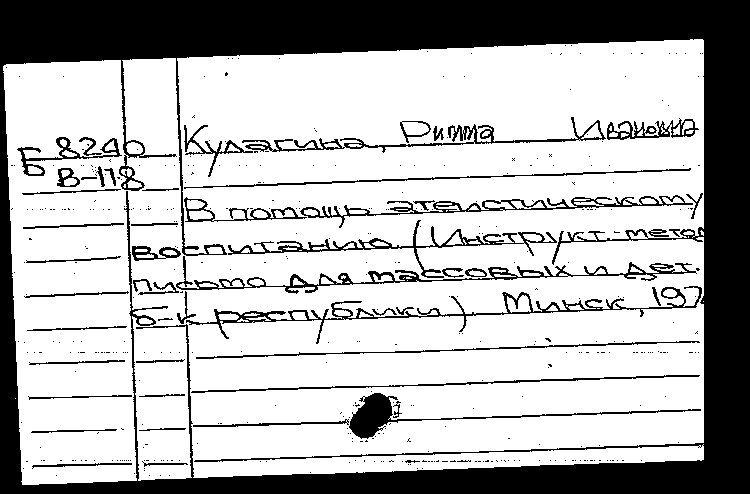 Б 8240 Кулагина, Римма Ивановна
В-118
В помощь атеистическому
воспитанию (Инструкт.-метод
письмо для массовых и дет.
б-к республики). Минск, 197